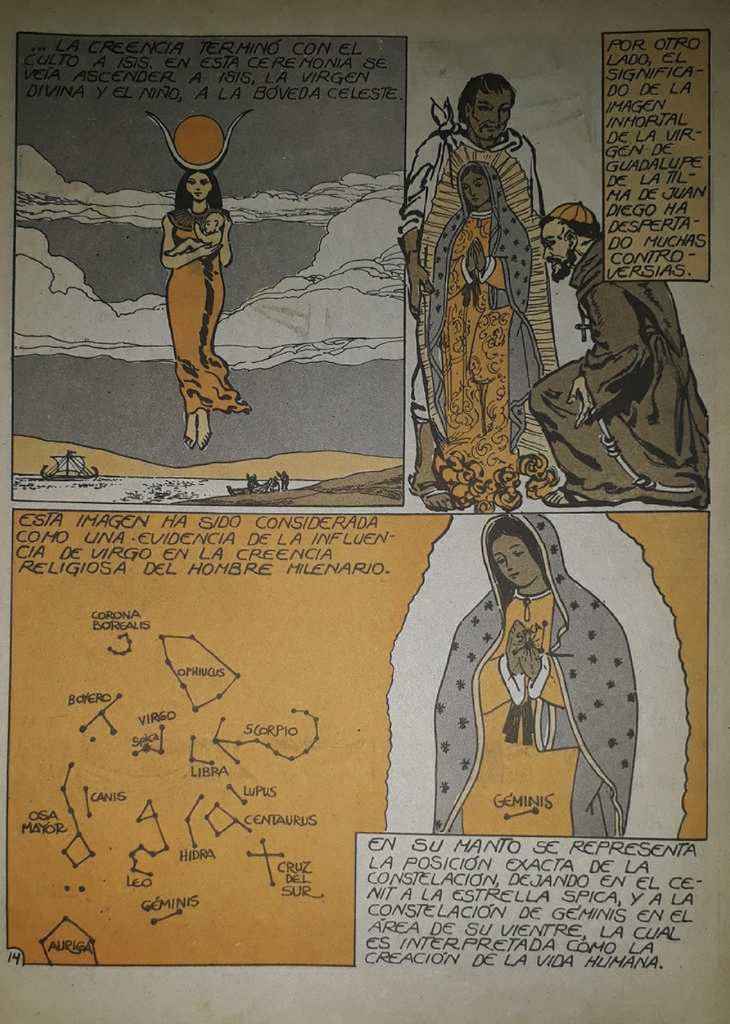 ... LA CREENCIA TERMINÓ CON EL
CULTO A ISIS. EN ESTA CEREMONIA SE
VEÍA ASCENDER A ISIS, LA VIRGEN
DIVINA Y EL NIÑO, A LA BÓVEDA CELESTE.
POR OTRO
LADO, EL
SIGNIFICA-
DO DE LA
IMAGEN
INMORTAL
DE LA VIR-
GEN DE
GUADALUPE
DE LA TIL-
MA DE JUAN
DIEGO HA
DESPERTA-
DO MUCHAS
CONTRO-
VERSIAS.
ESTA IMAGEN HA SIDO CONSIDERADA
COMO UNA EVIDENCIA DE LA INFLUEN-
CIA DE VIRGO EN LA CREENCIA
RELIGIOSA DEL HOMBRE MILENARIO.
CORONA
BOREALIS
OPHIUCUS
BOYERO
VIRGO
SPICA
SCORPIO
LIBRA
CANIS
LUPUS
OSA
MAYOR
CENTAURUS
HIDRA
LEO
CRUZ
DEL
SUR
GÉMINIS
AURIGA
GÉMINIS
EN SU MANTO SE REPRESENTA
LA POSICIÓN EXACTA DE LA
CONSTELACIÓN, DEJANDO EN EL CE-
NIT A LA ESTRELLA SPICA, Y A LA
CONSTELACIÓN DE GÉMINIS EN EL
ÁREA DE SU VIENTRE, LA CUAL
ES INTERPRETADA COMO LA
CREACIÓN DE LA VIDA HUMANA.
14